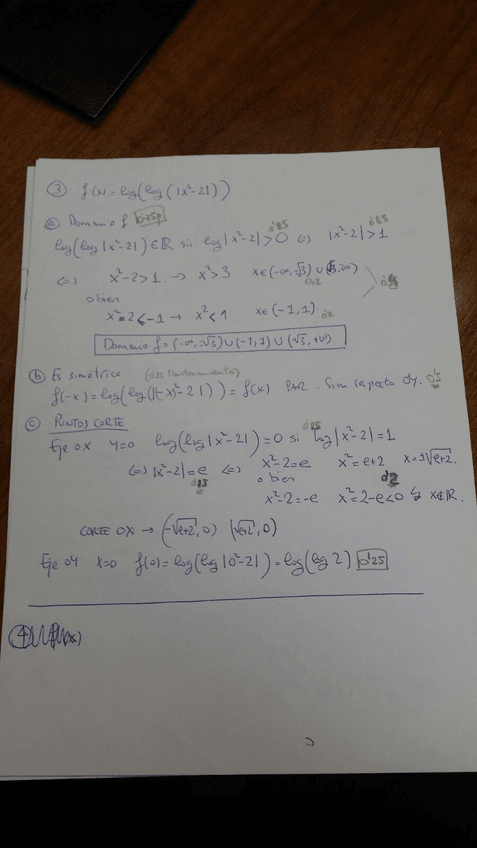 ③ f(x)=log(log(|x²-2|))
ⓐ Dominio f
log(log|x²-2|)∈ℝ si log|x²-2|>0 ⇔ |x²-2|>1
0'25 0'25
⇔ x²-2>1 → x²>3 x∈(-∞,-√3)∪(√3,∞)
o bien
x²-2<-1 → x²<1 x∈(-1,1).
Dominio f=(-∞,-√3)∪(-1,1)∪(√3,+∞)
ⓑ Es simétrica
f(-x)=log(log(|(-x)²-2|))=f(x) PAR. Sim respecto OY. 0'5
ⓒ PUNTOS CORTE
Eje OX y=0 log(log|x²-2|)=0 si log|x²-2|=1
⇔ |x²-2|=e ⇔ x²-2=e x²=e+2 x=±√e+2.
o bien
x²-2=-e x²=2-e<0 x∉ℝ.
CORTE OX → (-√e+2,0) (√e+2,0)
Eje OY x=0 f(0)=log(log|0²-2|)=log(log 2) 0'25
④